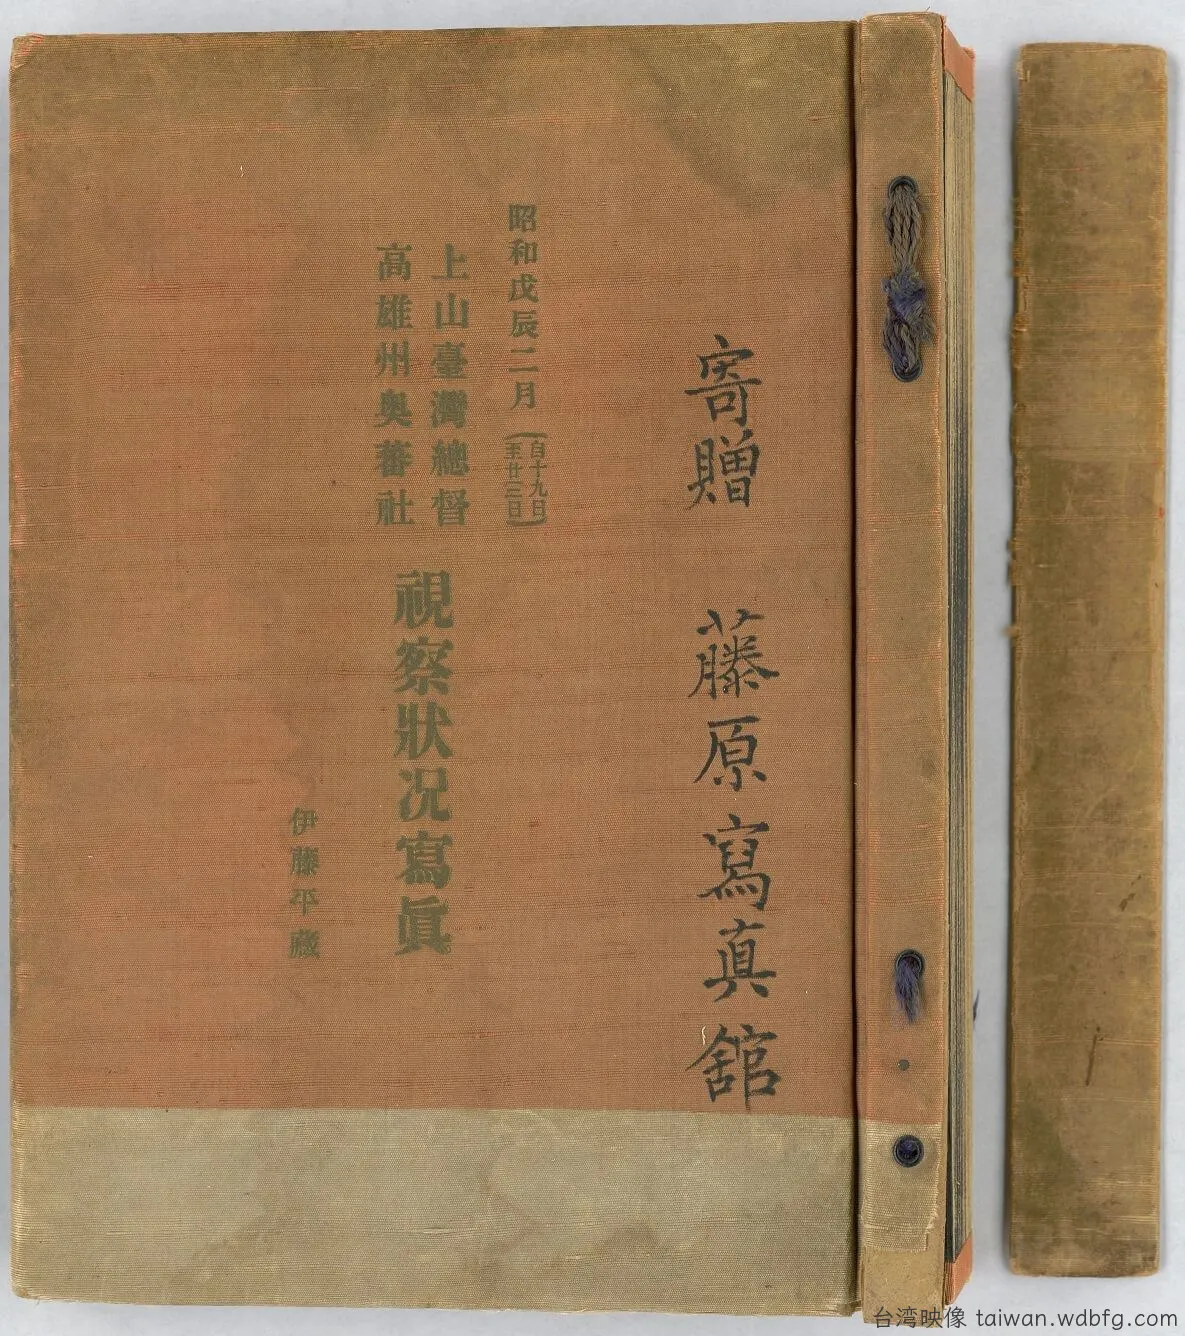 寄贈 藤原寫真舘
昭和戊辰二月(自十九日至廿三日)
上山臺灣總督
高雄州奥蕃社
視察狀况寫眞
伊藤平藏
台湾映像 taiwan.wdbfg.com